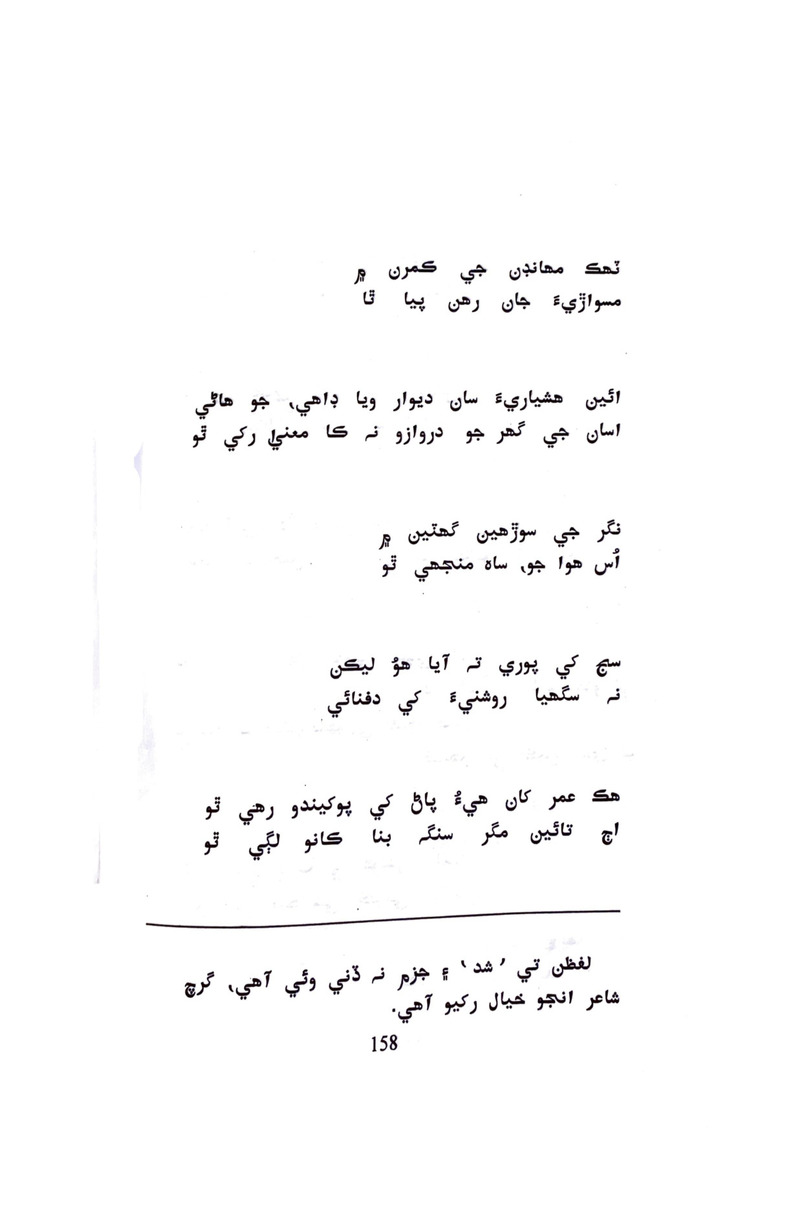 ٽهڪ مهانڊن جي ڪمرن ۾
مسواڙيءَ جان رهن پيا ٿا
ائين هشياريءَ سان ديوار ويا ڊاهي، جو هاڻي
اسان جي گهر جو دروازو نہ ڪا معنيٰ رکي ٿو
نگر جي سوڙهين گهٽين ۾
اُس هوا جو، ساھ منجهي ٿو
سج کي پوري تہ آيا هوُ ليڪن
نہ سگهيا روشنيءَ کي دفنائي
هڪ عمر کان هيءُ پاڻ کي پوکيندو رهي ٿو
اڄ تائين مگر سنگہ بنا ڪانو لڳي ٿو
لفظن تي ’شد‘ ۽ جزم نہ ڏني وئي آهي، گرچ
شاعر انجو خيال رکيو آهي.
158